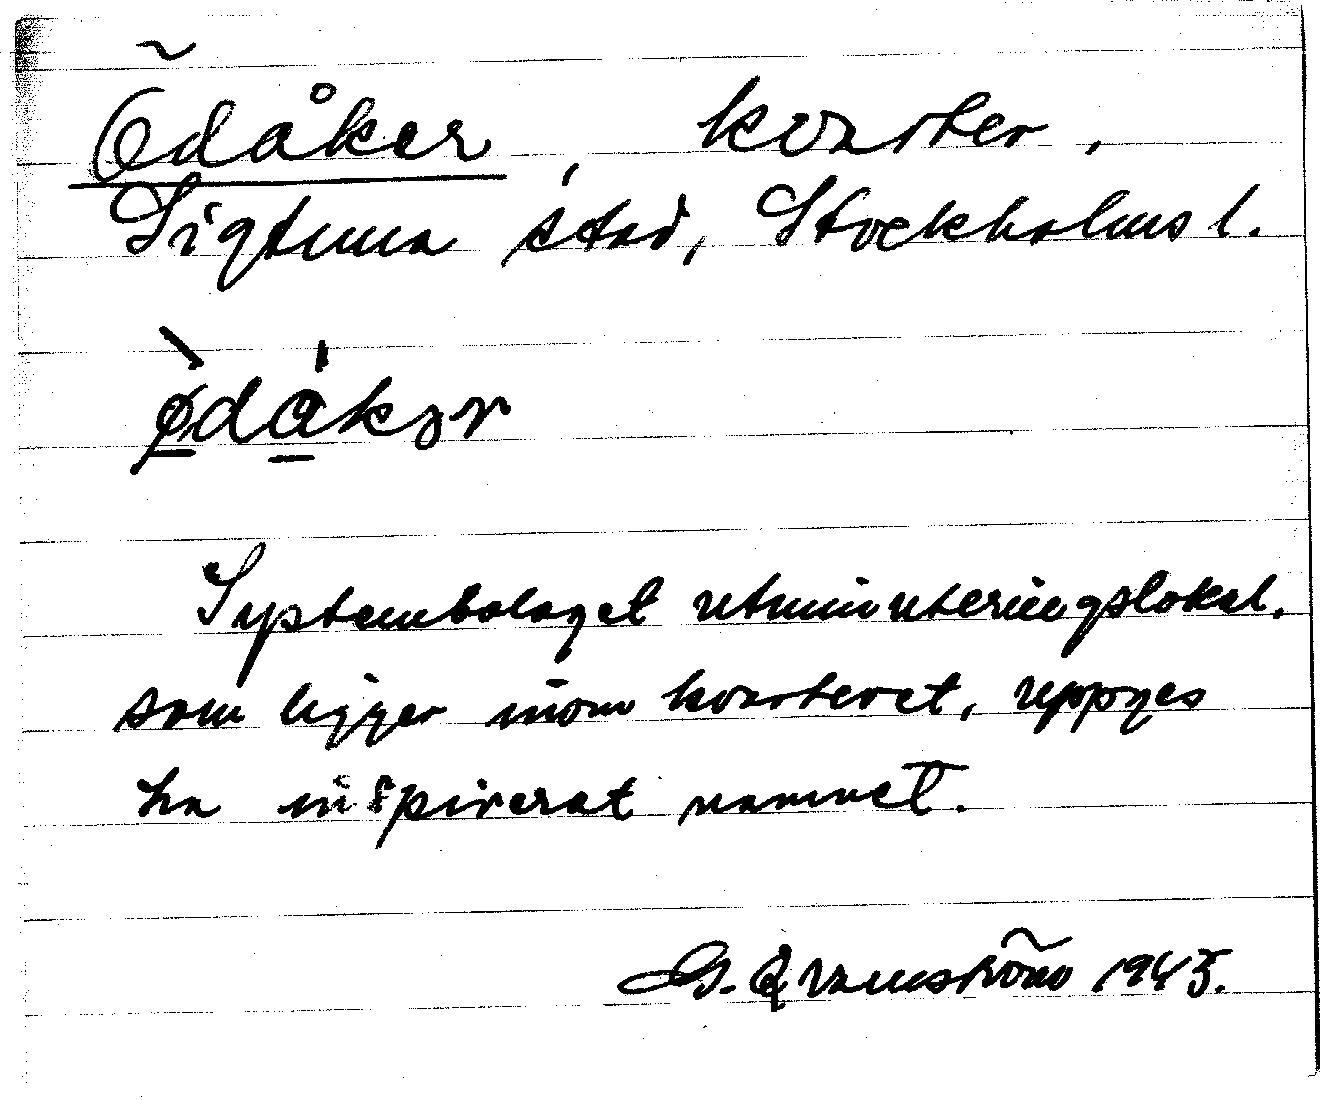 Ödåker, kvarter,
Sigtuna stad, Stockholms l.
ø̀dåkər
Systembolaget utminuteringslokal,
som ligger inom kvarteret, uppges
ha inspirerat namnet.
G. Granström 1945.